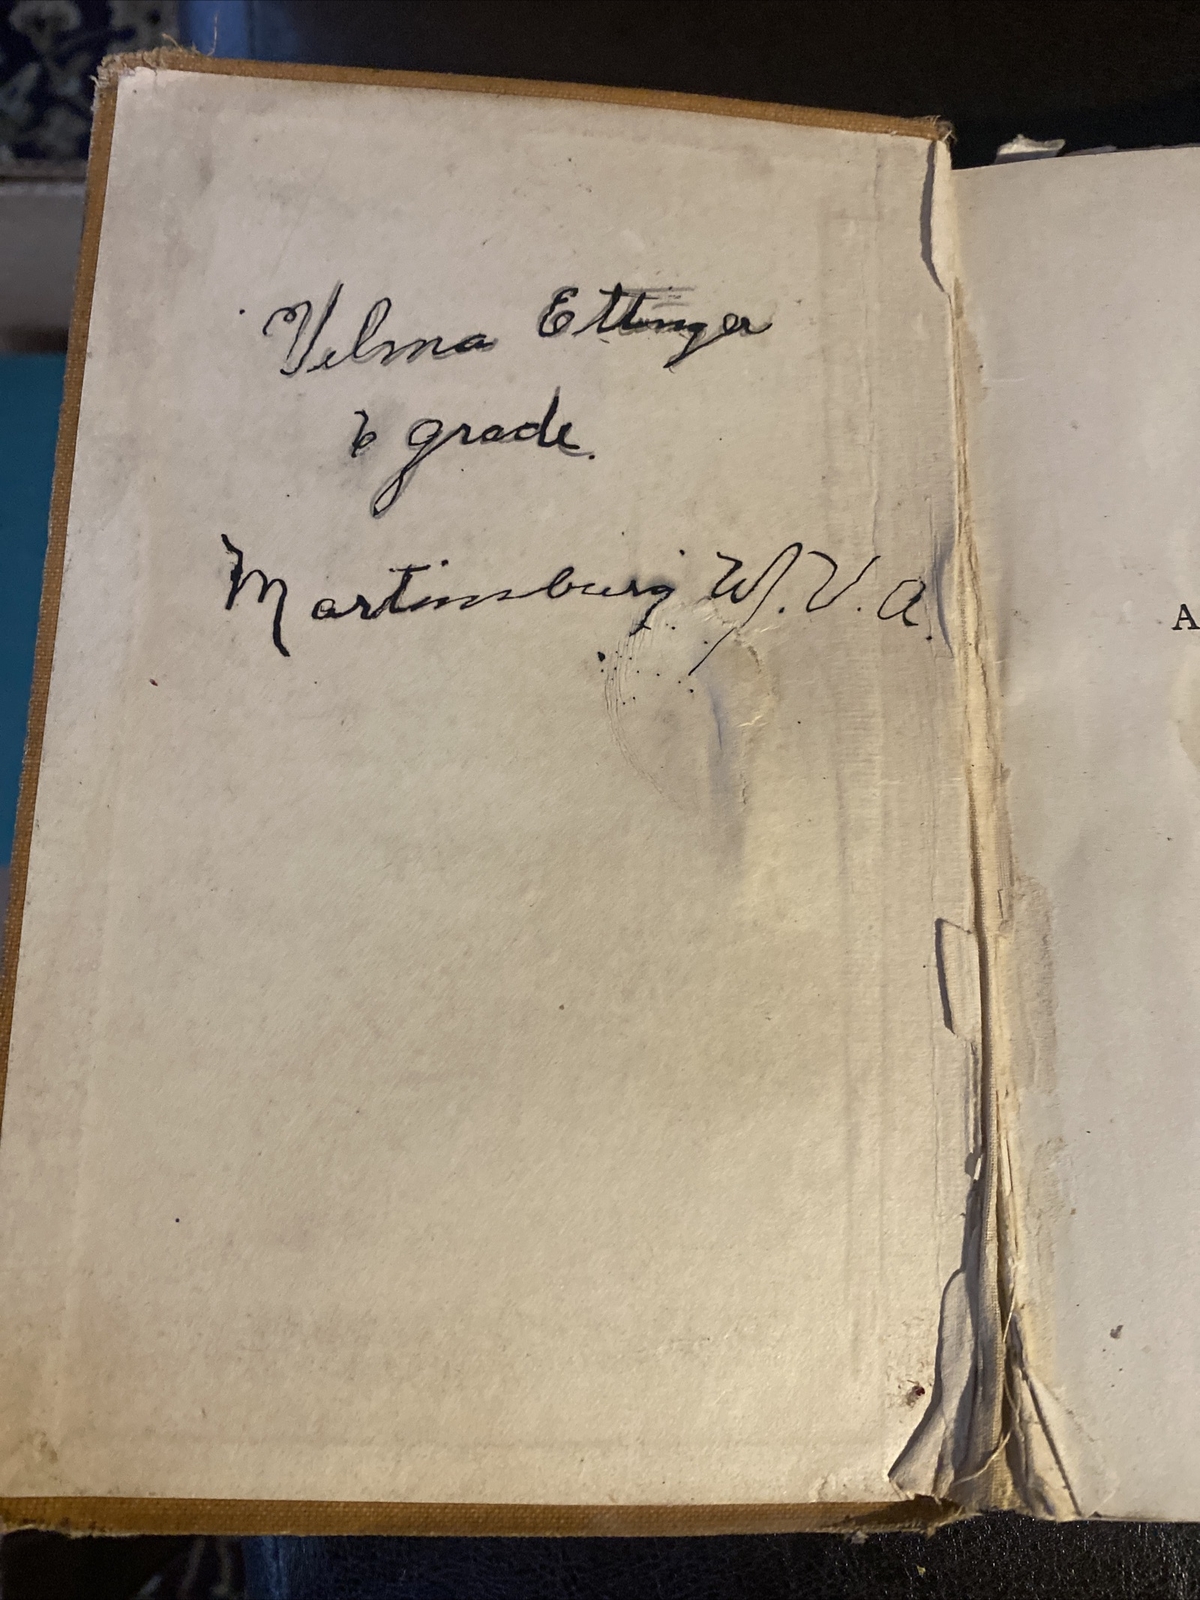 Velma Ettinger
6 grade.
Martinsburg W.V.a.
A